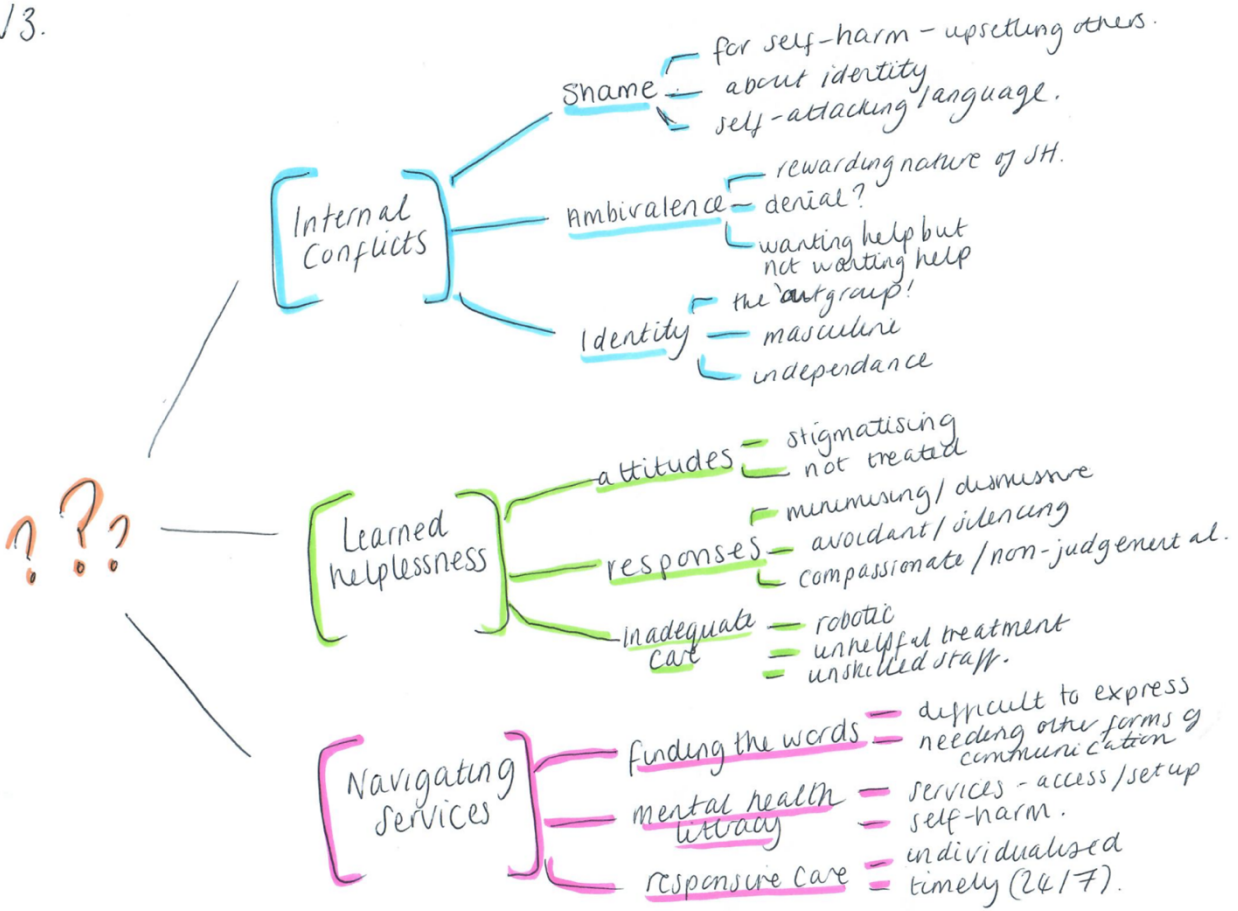 V3.
Internal
Conflicts
Shame
for self-harm - upsetting others.
about identity
self-attacking language.
Ambivalence
rewarding nature of SH.
denial?
wanting help but
not wanting help
Identity
the 'outgroup'
masculine
independance
???
Learned
helplessness
attitudes
stigmatising
not treated
responses
minimising/ dismissive
avoidant/ silencing
compassionate / non-judgemental.
inadequate
care
robotic
unhelpful treatment
unskilled staff.
Navigating
Services
finding the words
difficult to express
needing other forms of
communication
mental health
literacy
services - access/setup
self-harm.
responsive care
individualised
timely (24/7).